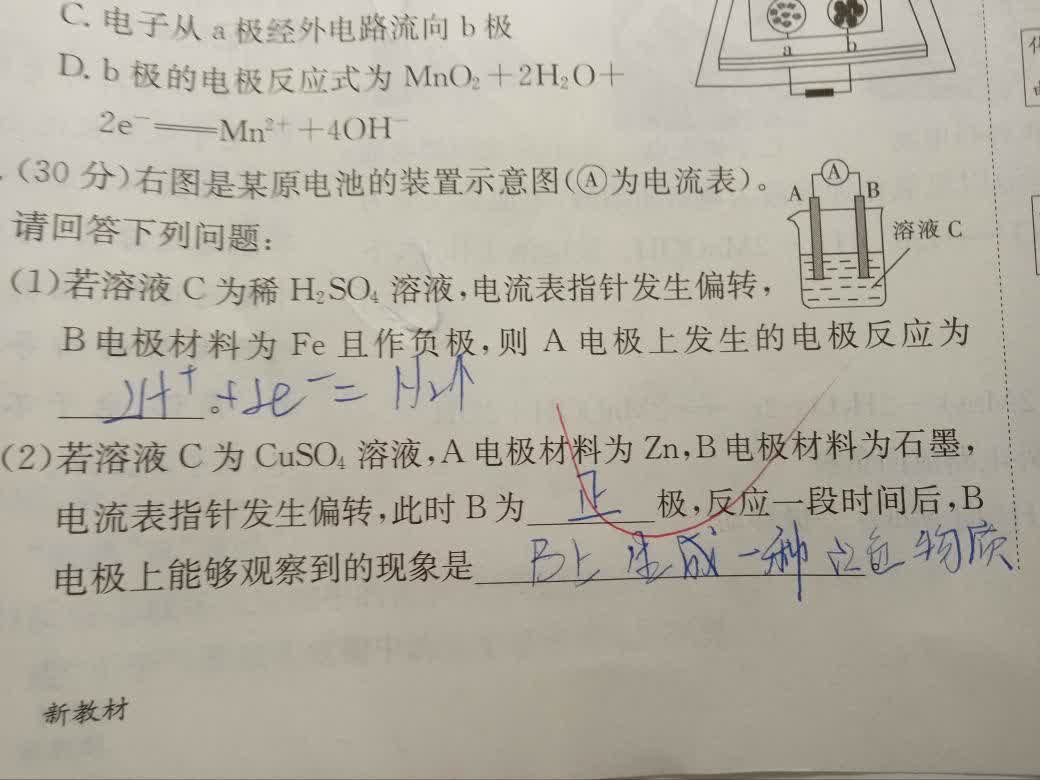 C. 电子从 a 极经外电路流向 b 极
D. b 极的电极反应式为 MnO₂＋2H₂O＋
2e⁻══Mn²⁺＋4OH⁻
a
b
(30 分)右图是某原电池的装置示意图(Ⓐ为电流表)。
请回答下列问题：
A
A
B
溶液 C
(1)若溶液 C 为稀 H₂SO₄ 溶液，电流表指针发生偏转，
B 电极材料为 Fe 且作负极，则 A 电极上发生的电极反应为
2H⁺+2e⁻=H₂↑。
(2)若溶液 C 为 CuSO₄ 溶液，A 电极材料为 Zn，B 电极材料为石墨，
电流表指针发生偏转，此时 B 为 正 极，反应一段时间后，B
电极上能够观察到的现象是 B上生成一种红色物质
新教材